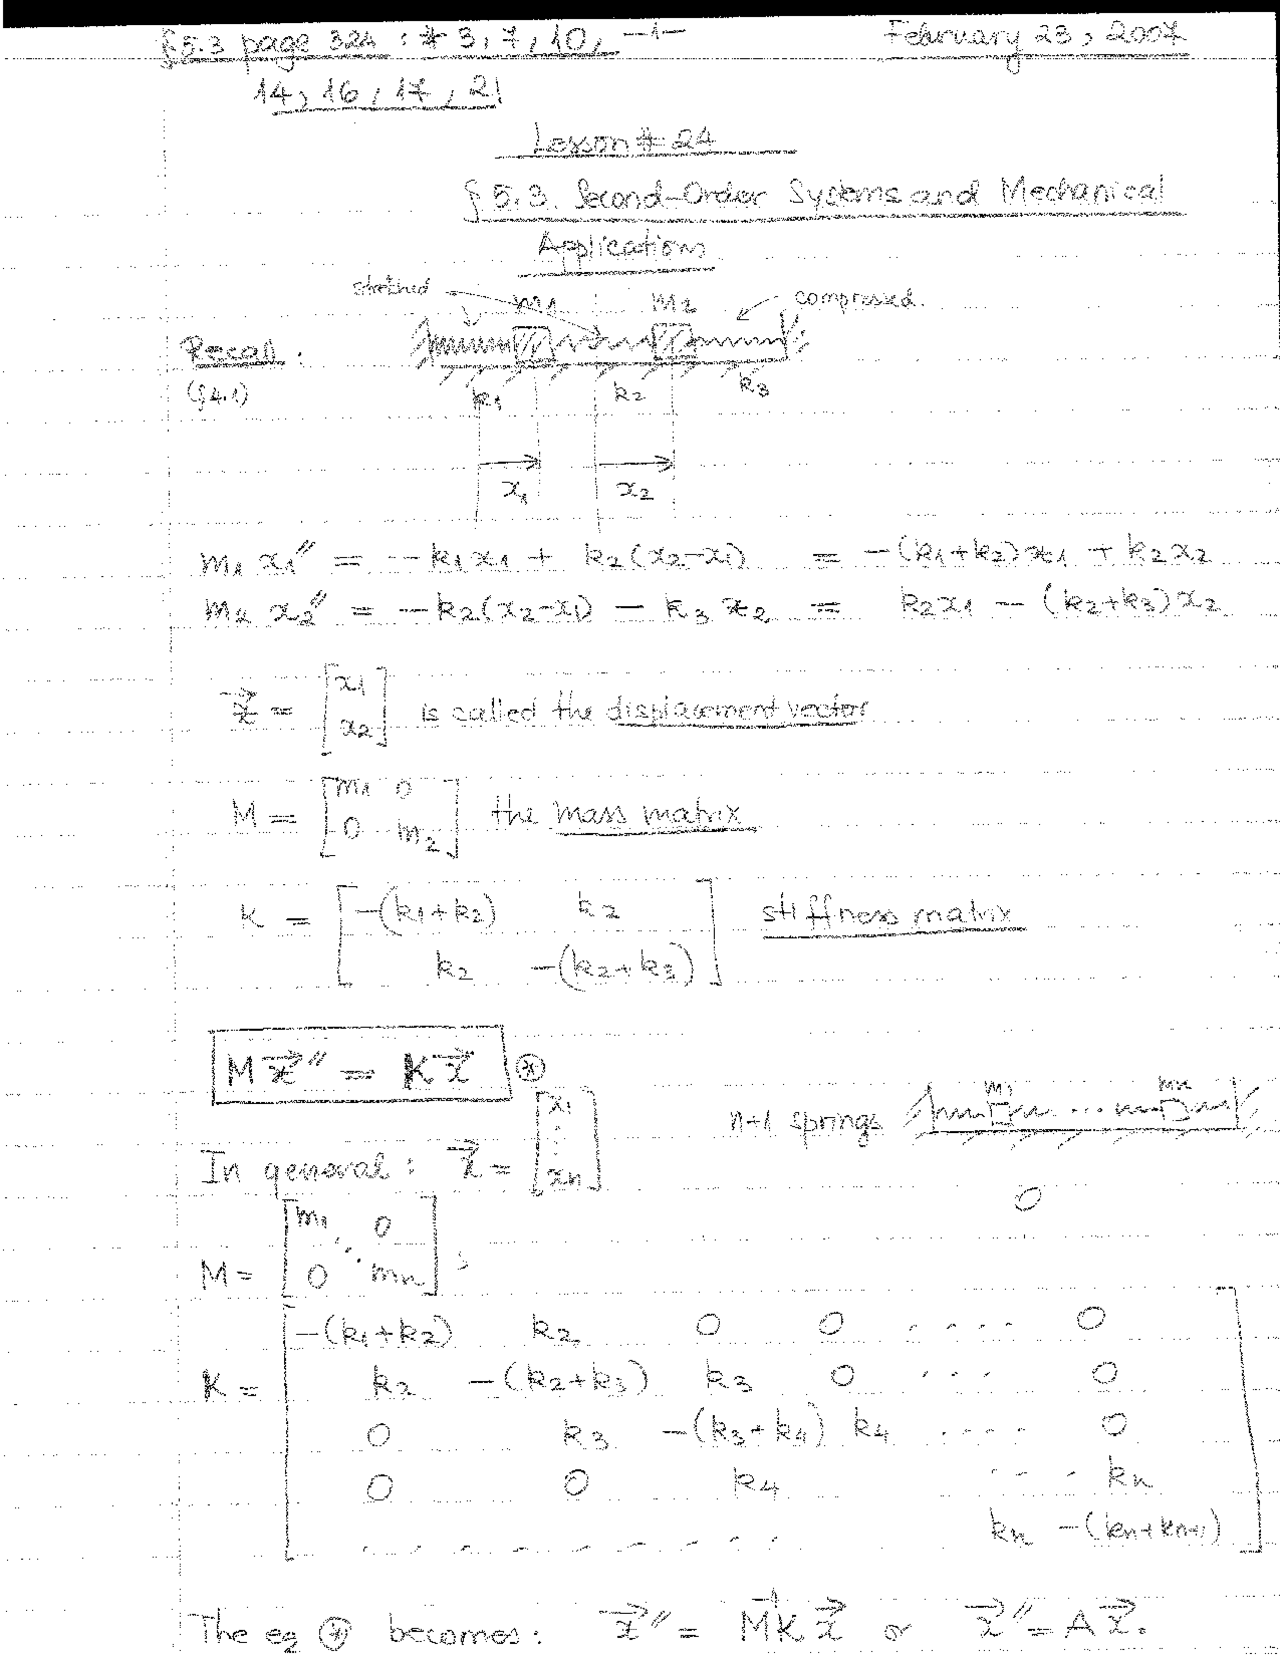 §5.3 page 324 : # 3, 7, 10, -1- February 23, 2007
14, 16, 17, 21
Lesson # 24
§ 5.3. Second-Order Systems and Mechanical
Applications
stretched m1 m2 compressed.
Recall :
(§4.1) k1 k2 k3
x1 x2
m1 x1″ = -k1x1 + k2(x2-x1) = -(k1+k2)x1 + k2x2
m2 x2″ = -k2(x2-x1) - k3 x2 = k2x1 - (k2+k3)x2
x⃗ = [x1
x2] is called the displacement vector
M = [m1 0
0 m2] the mass matrix
K = [-(k1+k2) k2
k2 -(k2+k3)] stiffness matrix
M x⃗″ = K x⃗ ⊛
n+1 springs m1 ... mn
In general : x⃗ = [x1
⋮
xn]
0
M = [m1 0
⋱
0 mn] ;
K = [-(k1+k2) k2 0 0 .... 0
k2 -(k2+k3) k3 0 ... 0
0 k3 -(k3+k4) k4 .... 0
0 0 k4 ... kn
.......... kn -(kn+kn+1)]
The eq ⊛ becomes : x⃗″ = M⁻¹K x⃗ or x⃗″ = A x⃗.